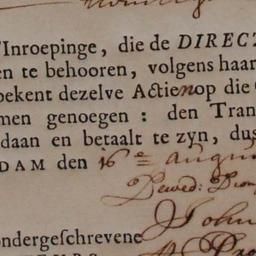 Inroepinge, die de DIRECT
en te behooren, volgens haar
bekent dezelve Actien op die
men genoegen : den Tran
daan en betaalt te zyn, dus
DAM den 16e augu
John
ndergeschrevene